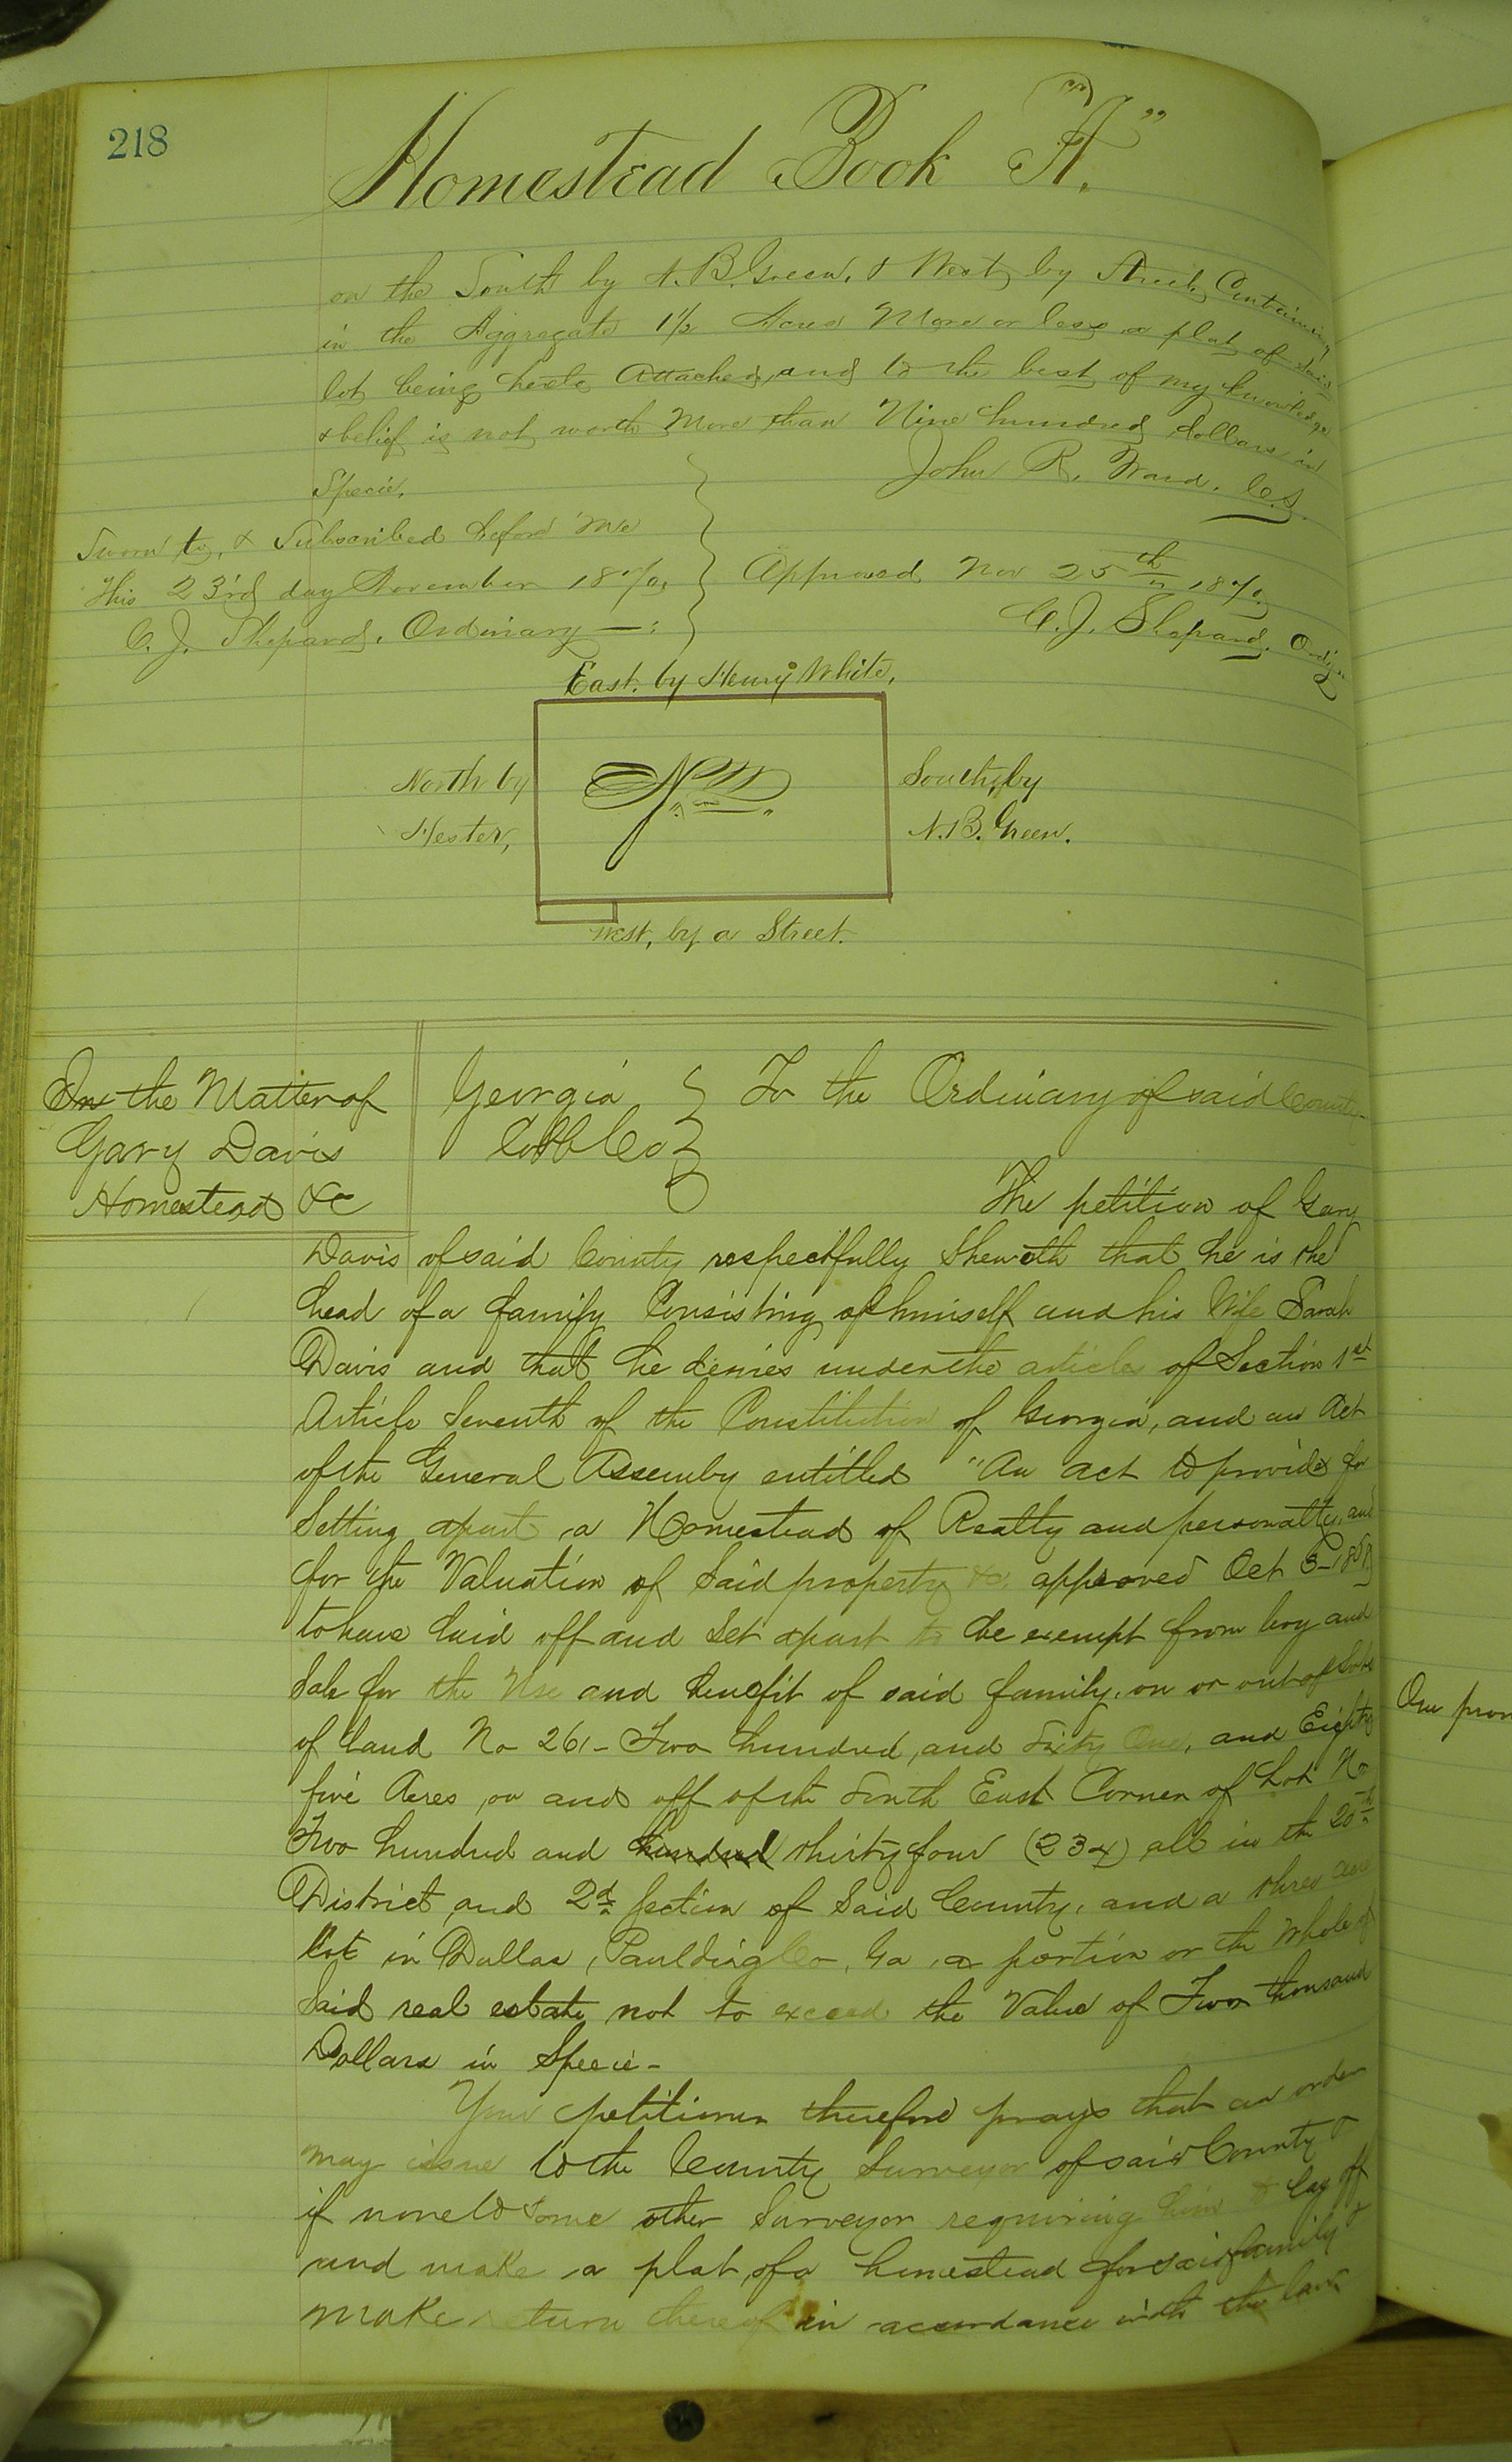 218
Homestead Book "A"
on the South by N. B. Green, & West by Street, Containing
in the Aggregate 1½ Acres More or less, a plat of said
lot being hereto Attached, and to the best of my knowledge
& belief is not worth More than Nine hundred dollars in
Specie.
John R. Ward. C.S.
Sworn to, & Subscribed before Me
this 23rd day November 1870,
C. J. Shepard. Ordinary
Approved Nov 25th 1870
C. J. Shepard, Ordy
East. by Henry White,
North by
Hester,
South, by
N. B. Green.
West, by a Street.
In the Matter of
Gary Davis
Homestead &c
Georgia
Cobb Co
To the Ordinary of said County
The petition of Gary
Davis of said County respectfully Sheweth that he is the
head of a family Consisting of himself and his Wife Sarah
Davis and that he desires under the article of Section 1st
Article Seventh of the Constitution of Georgia, and an Act
of the General Assemby entitled "An act to provide for
Setting apart a Homestead of Realty and personalty, and
for the Valuation of Said property &c. approved Oct 3-
to have laid off and Set apart to be exempt from levy and
Sale for the Use and benefit of said family, on or out of Lots
of land No 261- Two hundred, and Sixty One, and Eighty
five Acres, on and off of the South East Corner of Lot No
Two hundred and hundred thirty four (234) all in the 20th
District, and 2d Section of Said County, and a three acre
lot in Dallas, Paulding Co, Ga, a portion or the Whole of
Said real estate not to exceed the Value of Two thousand
Dollars in Specie-
Your petitioner therefore prays that an order
may issue to the County Surveyor of said County &
if none to some other Surveyor requiring him to lay off
and make a plat, of a homestead for said family &
make return thereof in accordance with the law
One prom